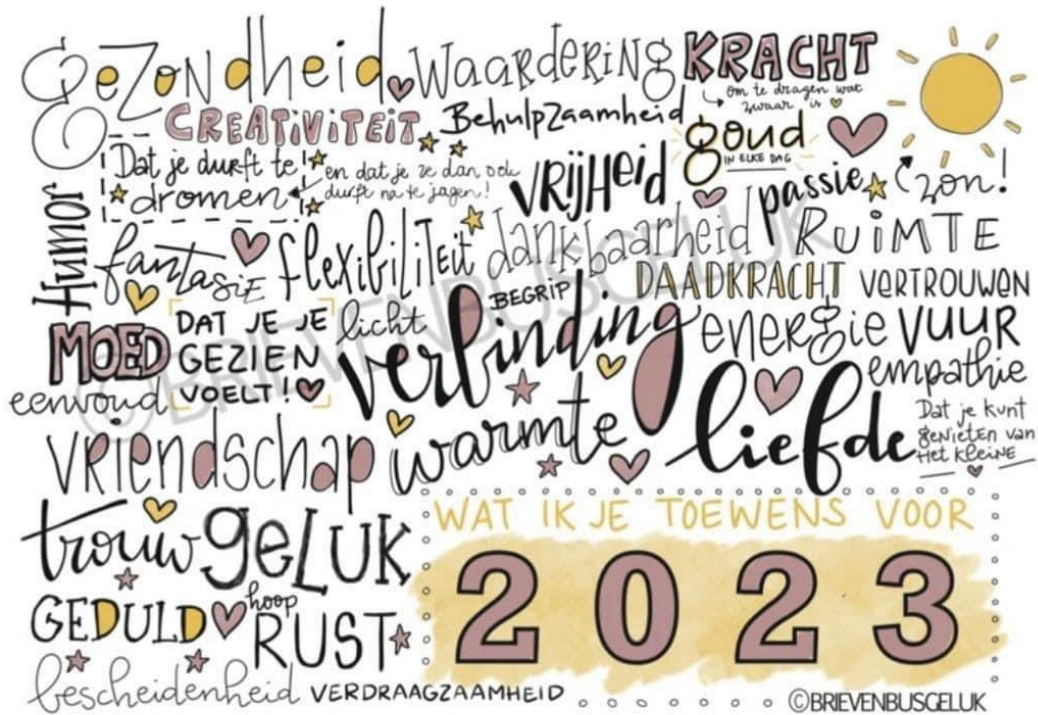 gezondheid
waardering
KRACHT
om te dragen wat
zwaar is
CREATIVITEIT
Behulpzaamheid
goud
IN ELKE DAG
Dat je durft te
dromen
en dat je ze dan ook
durft na te jagen!
VRIJHeid
passie
zon!
Humor
fantasie
flexibiliteit
dankbaarheid
RUiMTE
BEGRIP
DAADKRACHT
VERTROUWEN
MOED
DAT JE JE
GEZIEN
VOELT!
licht
verbinding
energie
VUUR
empathie
eenvoud
vriendschap
warmte
liefde
Dat je kunt
genieten van
Het kleine
trouw
geLUK
WAT IK JE TOEWENS VOOR
2023
GEDULD
hoop
RUST
bescheidenheid
VERDRAAGZAAMHEID
©BRIEVENBUSGELUK
©BRIEVENBUSGELUK